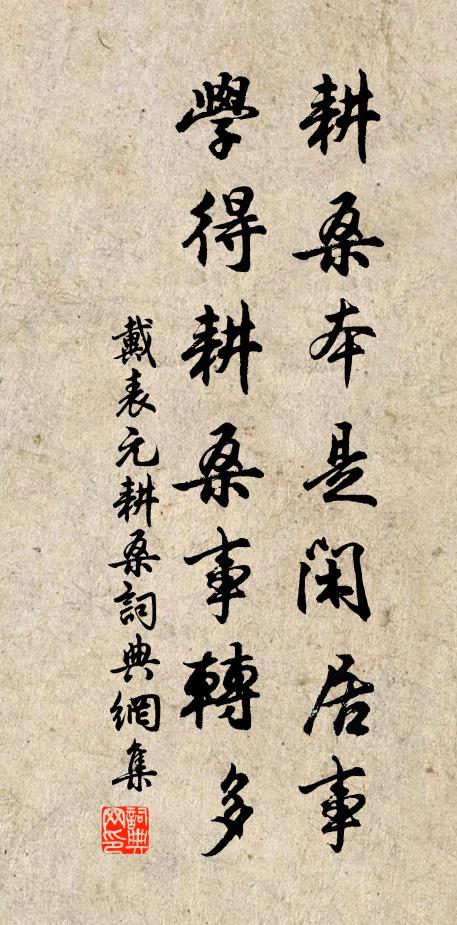 耕桑本是閑居事
學得耕桑事轉多
戴表元耕桑詞典網集
詞典网印